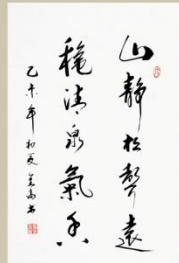 山靜松聲遠
穐清泉氣香
乙未年初夏